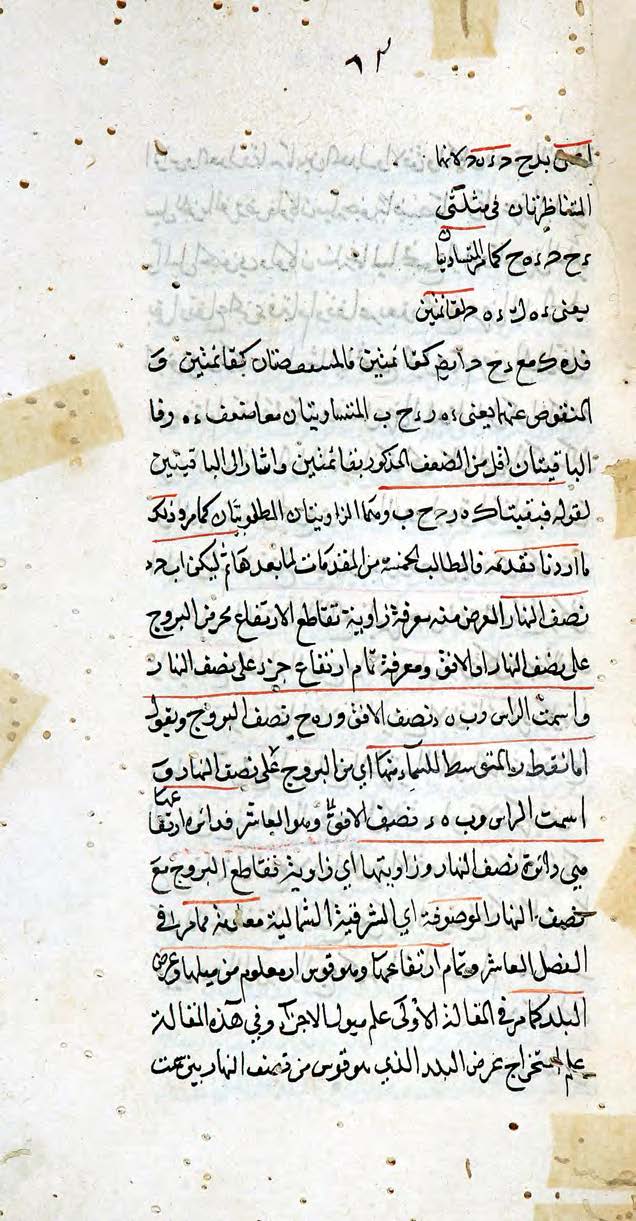 ٦٢
اعنى بدح د ه لانها
المتناظرتان فى مثلثى
ء ح ح ء ه ح كما مر المتساويتان
يعنى ء ه ء ه ح لقائمتين
مع ء ح ح ايضا كقائمتين فالمنقوصتان كقائمتين و
المنقوص عنهما يعنى ء ه ر ء ح ب المتساويتان معا ضعف ء ه ر فا
لباقيتان اقل من الضعف المذكور بقائمتين واشار الى الباقيتين
لقوله فبقيتا ك ه ر ح ب وهما الزاويتان المطلوبتان كما مر وذلك
ما اردنا تقدمه فالمطالب الخمسة من المقدمات لما بعدها ثم ليكن ا ب ح د
نصف النهار الغرض منه معرفة زاوية تقاطع الارتفاع بحرف البروج
على نصف النهار او الافق ومعرفة تمام ارتفاع جزء على نصف النهار
و ا سمت الراس و ب ه ء نصف الافق و ر ه ح نصف البروج ونقول
اما نقطة المتوسط للسماء منها اى من البروج على نصف النهار و
ا سمت الراس و ب ه ء نصف الافق وهو العاشر فدائرة ارتفاعها
هى دائرة نصف النهار وزاويتها اى زاوية تقاطع البروج مع
نصف النهار الموصوفة اى الشرقية الشمالية معلومة مما مر فى
الفصل العاشر وتمام ارتفاعها وهو قوس ا ر معلوم من ميلها وعرض
البلد كما مر فى المقالة الاولى علم ميول الاجزآء وفى هذه المقالة
علم استخراج عرض البلد الذى هو قوس من نصف النهار بين سمت